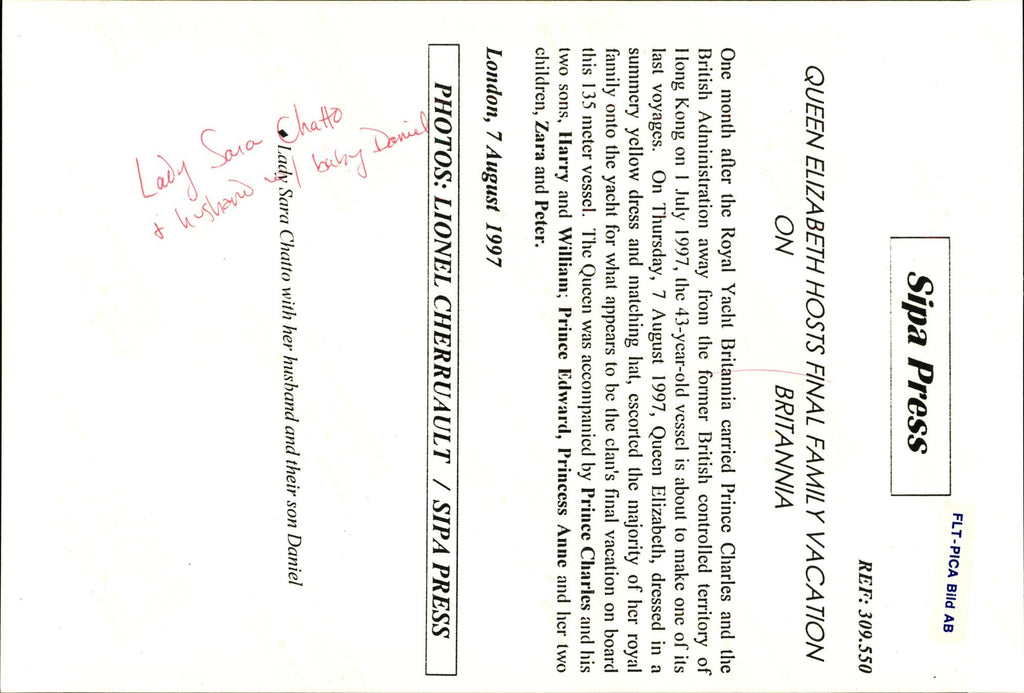 Sipa Press
FLT-PICA Bild AB
REF: 309.550
QUEEN ELIZABETH HOSTS FINAL FAMILY VACATION
ON BRITANNIA
One month after the Royal Yacht Britannia carried Prince Charles and the
British Administration away from the former British controlled territory of
Hong Kong on 1 July 1997, the 43-year-old vessel is about to make one of its
last voyages. On Thursday, 7 August 1997, Queen Elizabeth, dressed in a
summery yellow dress and matching hat, escorted the majority of her royal
family onto the yacht for what appears to be the clan's final vacation on board
this 135 meter vessel. The Queen was accompanied by Prince Charles and his
two sons, Harry and William; Prince Edward, Princess Anne and her two
children, Zara and Peter.
London, 7 August 1997
PHOTOS: LIONEL CHERRUAULT / SIPA PRESS
Lady Sara Chatto with her husband and their son Daniel
Lady Sara Chatto
+ husband w/ baby Daniel